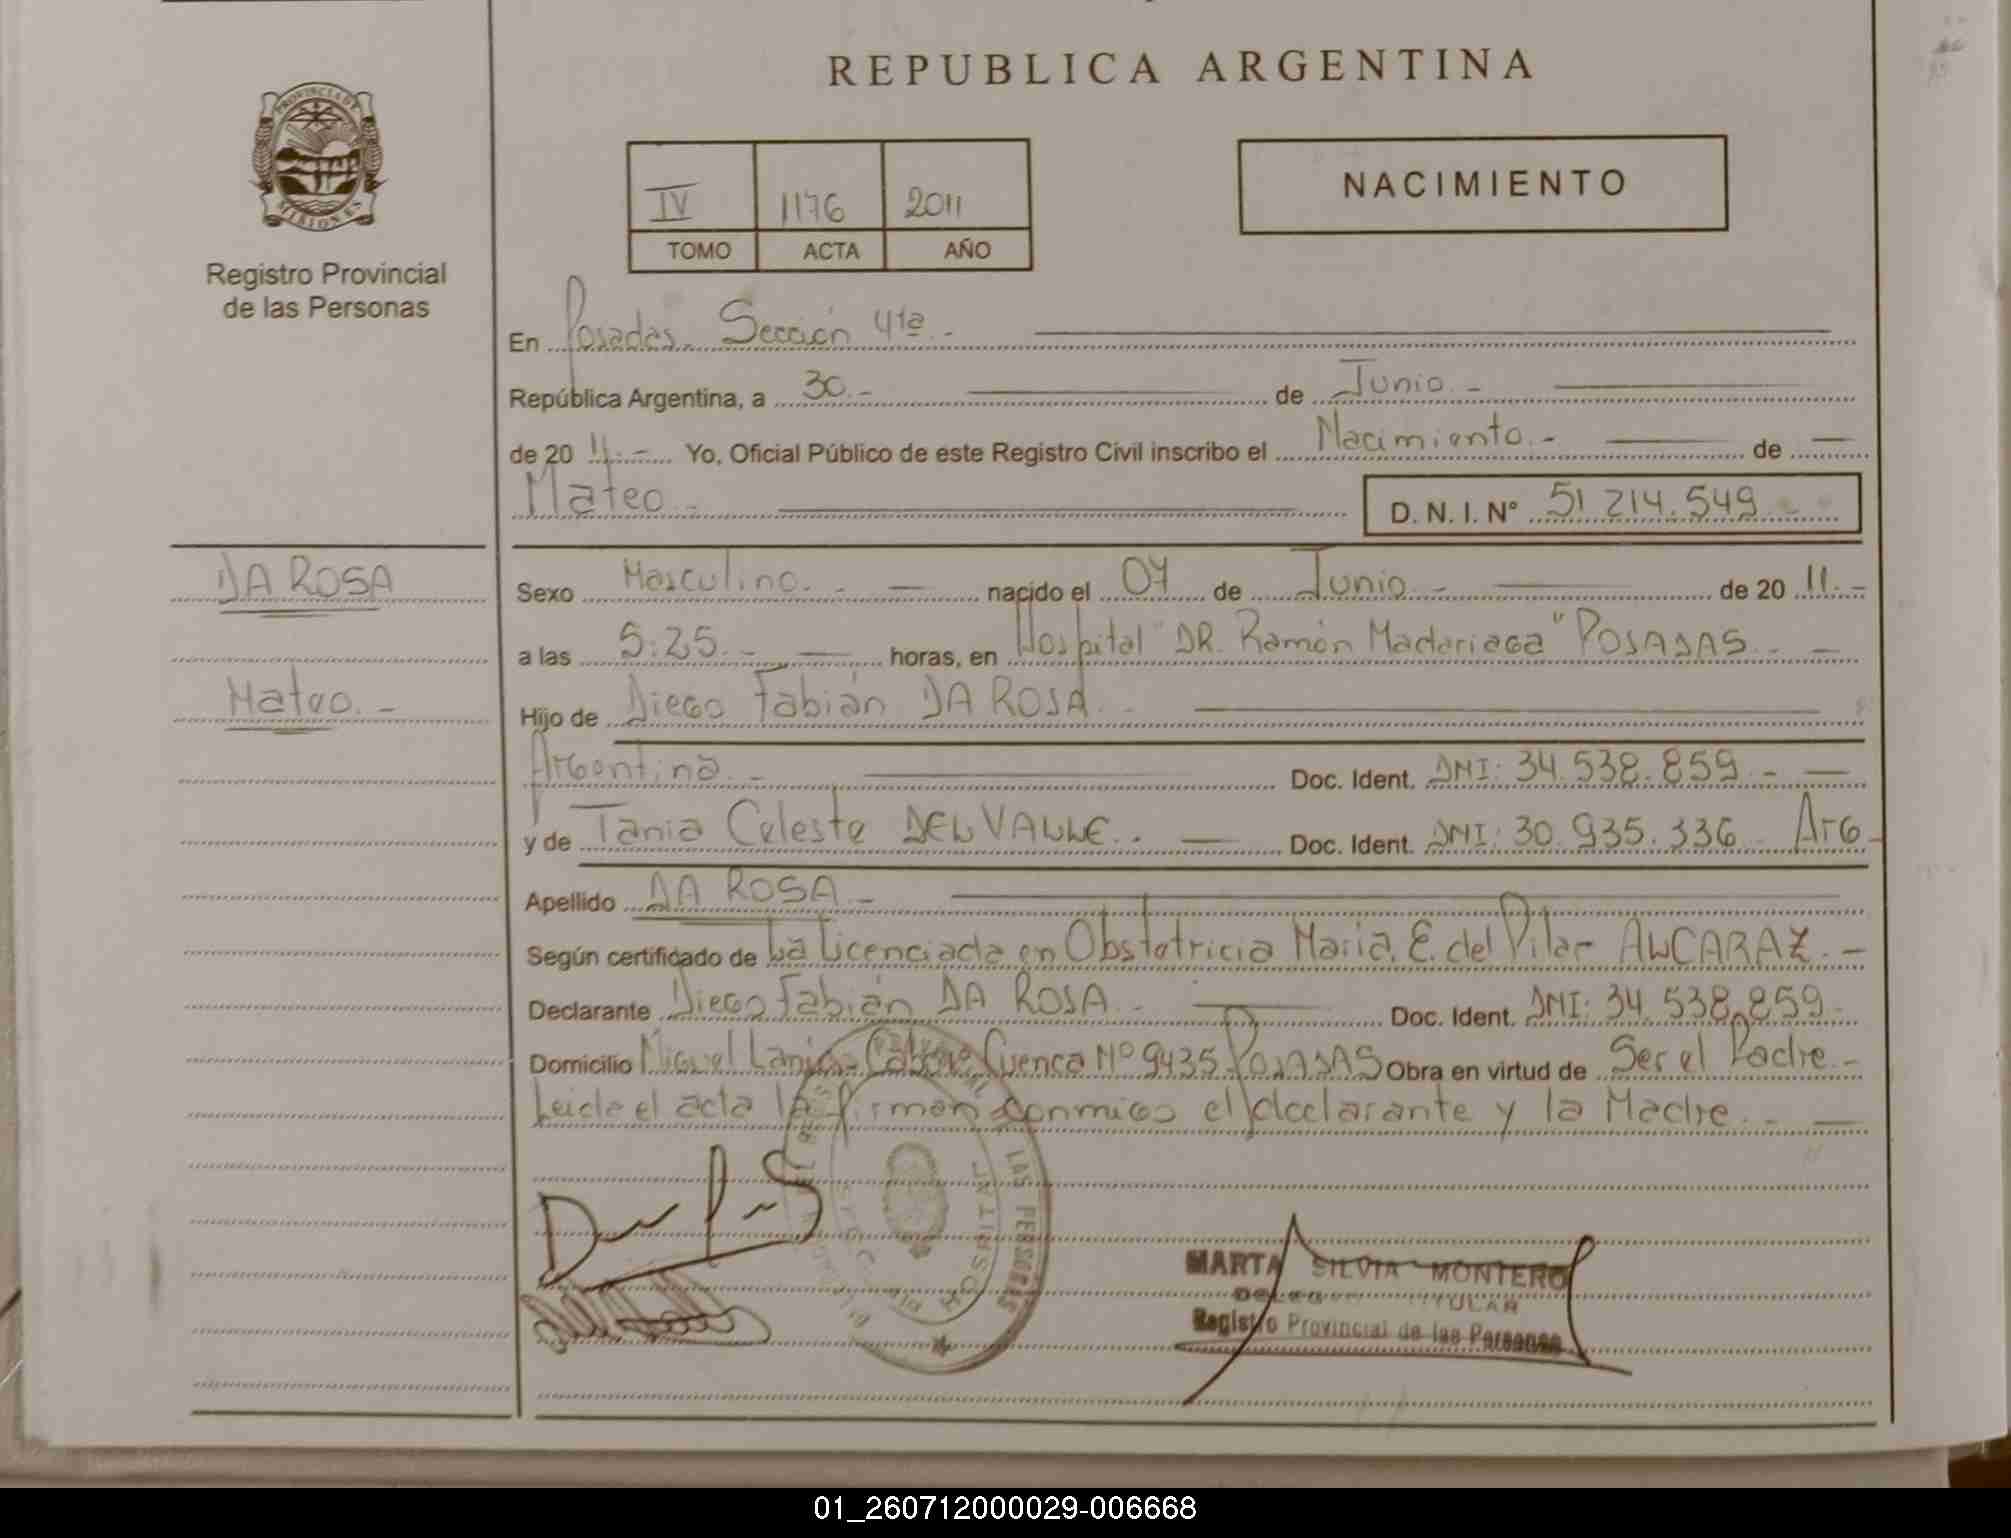 REPUBLICA ARGENTINA
PROVINCIA DE
MISIONES
Registro Provincial
de las Personas
IV 1176 2011
TOMO ACTA AÑO
NACIMIENTO
En Posadas. Sección 4ta.-
República Argentina, a 30.- de Junio.-
de 2011.- Yo, Oficial Público de este Registro Civil inscribo el Nacimiento.- de
Mateo.- D. N. I. N° 51.214.549
DA ROSA
Mateo.-
Sexo Masculino.- nacido el 07 de Junio.- de 2011.-
a las 5:25.- horas, en Hospital "DR. Ramón Madariaga" POSADAS.-
Hijo de Diego Fabián DA ROSA.-
Argentina.- Doc. Ident. DNI: 34.538.859.-
y de Tania Celeste DEL VALLE.- Doc. Ident. DNI: 30.935.336 Arg.
Apellido DA ROSA.-
Según certificado de La Licenciada en Obstetricia Maria. E. del Pilar ALCARAZ.-
Declarante Diego Fabián DA ROSA.- Doc. Ident. DNI: 34.538.859.-
Domicilio Miguel Lanús Cuenca Nº 9435 POSADAS Obra en virtud de Ser el Padre.-
Leida el acta la firman conmigo el declarante y la Madre.-
LAS PERSONAS
MARTA SILVIA MONTERO
TITULAR
Registro Provincial de las Personas
01_260712000029-006668